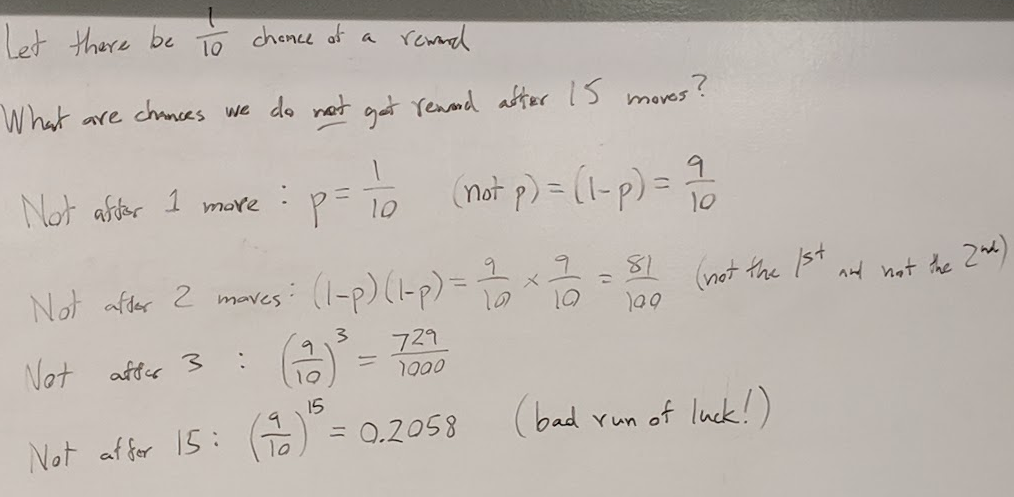 Let there be 1/10 chance of a reward
What are chances we do not get reward after 15 moves?
Not after 1 move : p = 1/10 (not p) = (1-p) = 9/10
Not after 2 moves: (1-p)(1-p) = 9/10 × 9/10 = 81/100 (not the 1st and not the 2nd)
Not after 3 : (9/10)^3 = 729/1000
Not after 15: (9/10)^15 = 0.2058 (bad run of luck!)